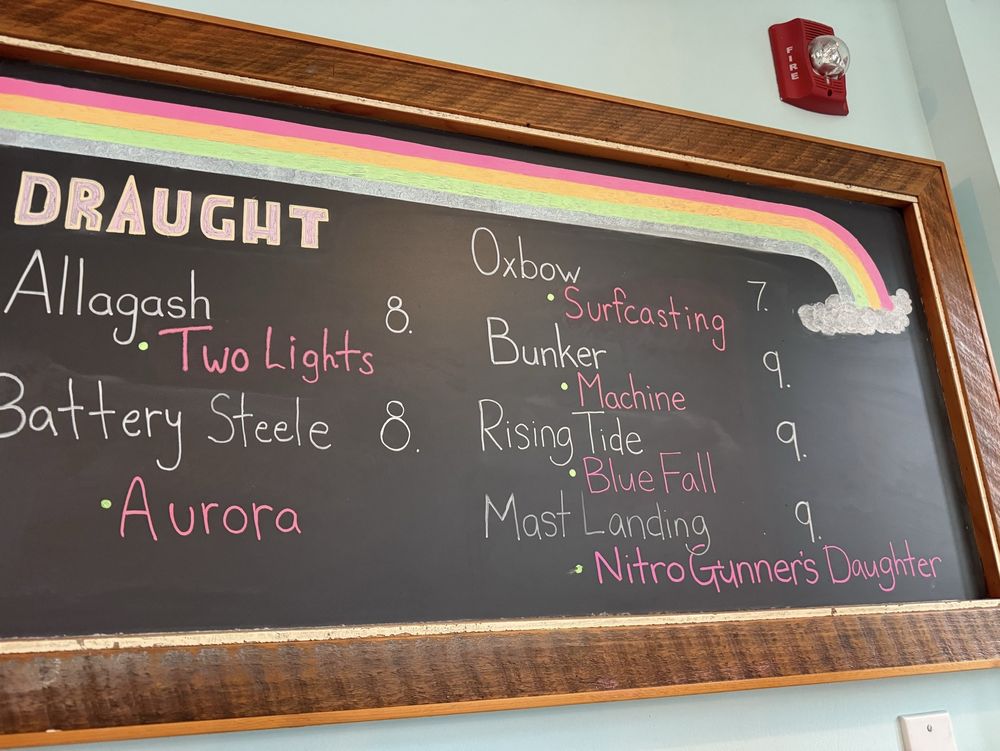 FIRE
DRAUGHT
Allagash 8.
• Two Lights
Battery Steele 8.
• Aurora
Oxbow 7.
• Surfcasting
Bunker 9.
• Machine
Rising Tide 9.
• Blue Fall
Mast Landing 9.
• Nitro Gunner's Daughter